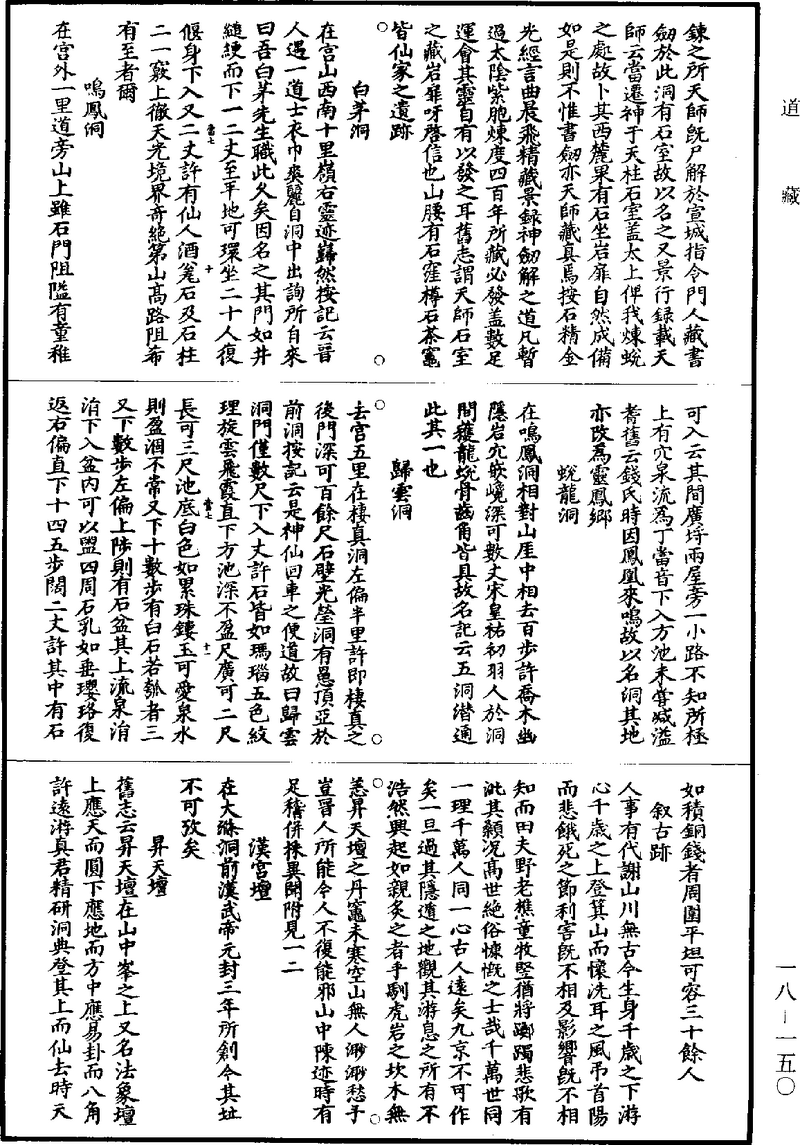 道藏
一八-一五〇
錬之所天師旣尸解於宣城指令門人藏書
劒於此洞有石室故以名之又景行録載天
師云當還神于天柱石室盖太上俾我煉蛻
之處故卜其西麓果有石坐岩扉自然成備
如是則不惟書劒亦天師藏真焉按石精金
光經言曲晨飛精藏景録神劒解之道凡暫
過太陰紫胞煉度四百年所藏必發盖數足
運會其靈自有以發之耳舊志謂天師石室
之藏岩扉呀啓信也山腰有石窪樽石茶竈
皆仙家之遺跡
白茅洞
在宮山西南十里嶺右靈迹巋然按記云晉
人遇一道士衣巾爽麗自洞中出詢所自來
曰吾白茅先生職此久矣因名之其門如井
縋綆而下一二丈至平地可環坐二十人復
偃身下入又二丈許有仙人酒瓮石及石柱
二一竅上徹天光境界奇絶第山髙路阻希
有至者爾
鳴鳳洞
在宮外一里道旁山上雖石門阻隘有童稚
當七
十
可入云其間廣埒兩屋旁一小路不知所極
上有穴泉流爲丁當音下入方池未甞减溢
耆舊云錢氏時因鳳凰來鳴故以名洞其地
亦改為靈鳳鄉
蛻龍洞
在鳴鳳洞相對山崖中相去百步許喬木幽
隱岩穴嵌巇深可數丈宋皇祐初羽人於洞
間獲龍蛻骨齒角皆具故名記云五洞潜通
此其一也
歸雲洞
去宮五里在棲真洞左偏半里許即棲真之
後門深可百餘尺石壁光瑩洞有邑頂亞於
前洞按記云是神仙回車之便道故曰歸雲
洞門僅數尺下入丈許石皆如瑪瑙五色紋
理旋雲飛霞直下方池深不盈尺廣可二尺
長可三尺池底白色如累珠鏤玉可愛泉水
則盈涸不常又下十數步有白石若瓠者三
又下數步左偏上陟則有石盆其上流泉涓
涓下入盆内可以盥四周石乳如垂瓔珞復
返右偏直下十四五步闊二丈許其中有石
當七
十一
如積銅錢者周圍平坦可容三十餘人
叙古跡
人事有代謝山川無古今生身千歲之下游
心千歲之上登箕山而懷洗耳之風弔首陽
而悲餓死之節利害旣不相及影響旣不相
知而田夫野老樵童牧竪猶將躑躅悲歌有
泚其顙况髙世絶俗慷慨之士哉千萬世同
一理千萬人同一心古人遠矣九京不可作
矣一旦過其隱遁之地觀其游息之所有不
浩然興起如親炙之者乎馴虎岩之坎木無
恙昇天壇之丹竈未寒空山無人渺渺愁予
豈晉人所能令人不復能邪山中陳迹時有
足稽併採異聞附見一二
漢宮壇
在大滌洞前漢武帝元封三年所創今其址
不可攷矣
昇天壇
舊志云昇天壇在山中峯之上又名法象壇
上應天而圓下應地而方中應易卦而八角
許遠游真君精研洞典登其上而仙去時天